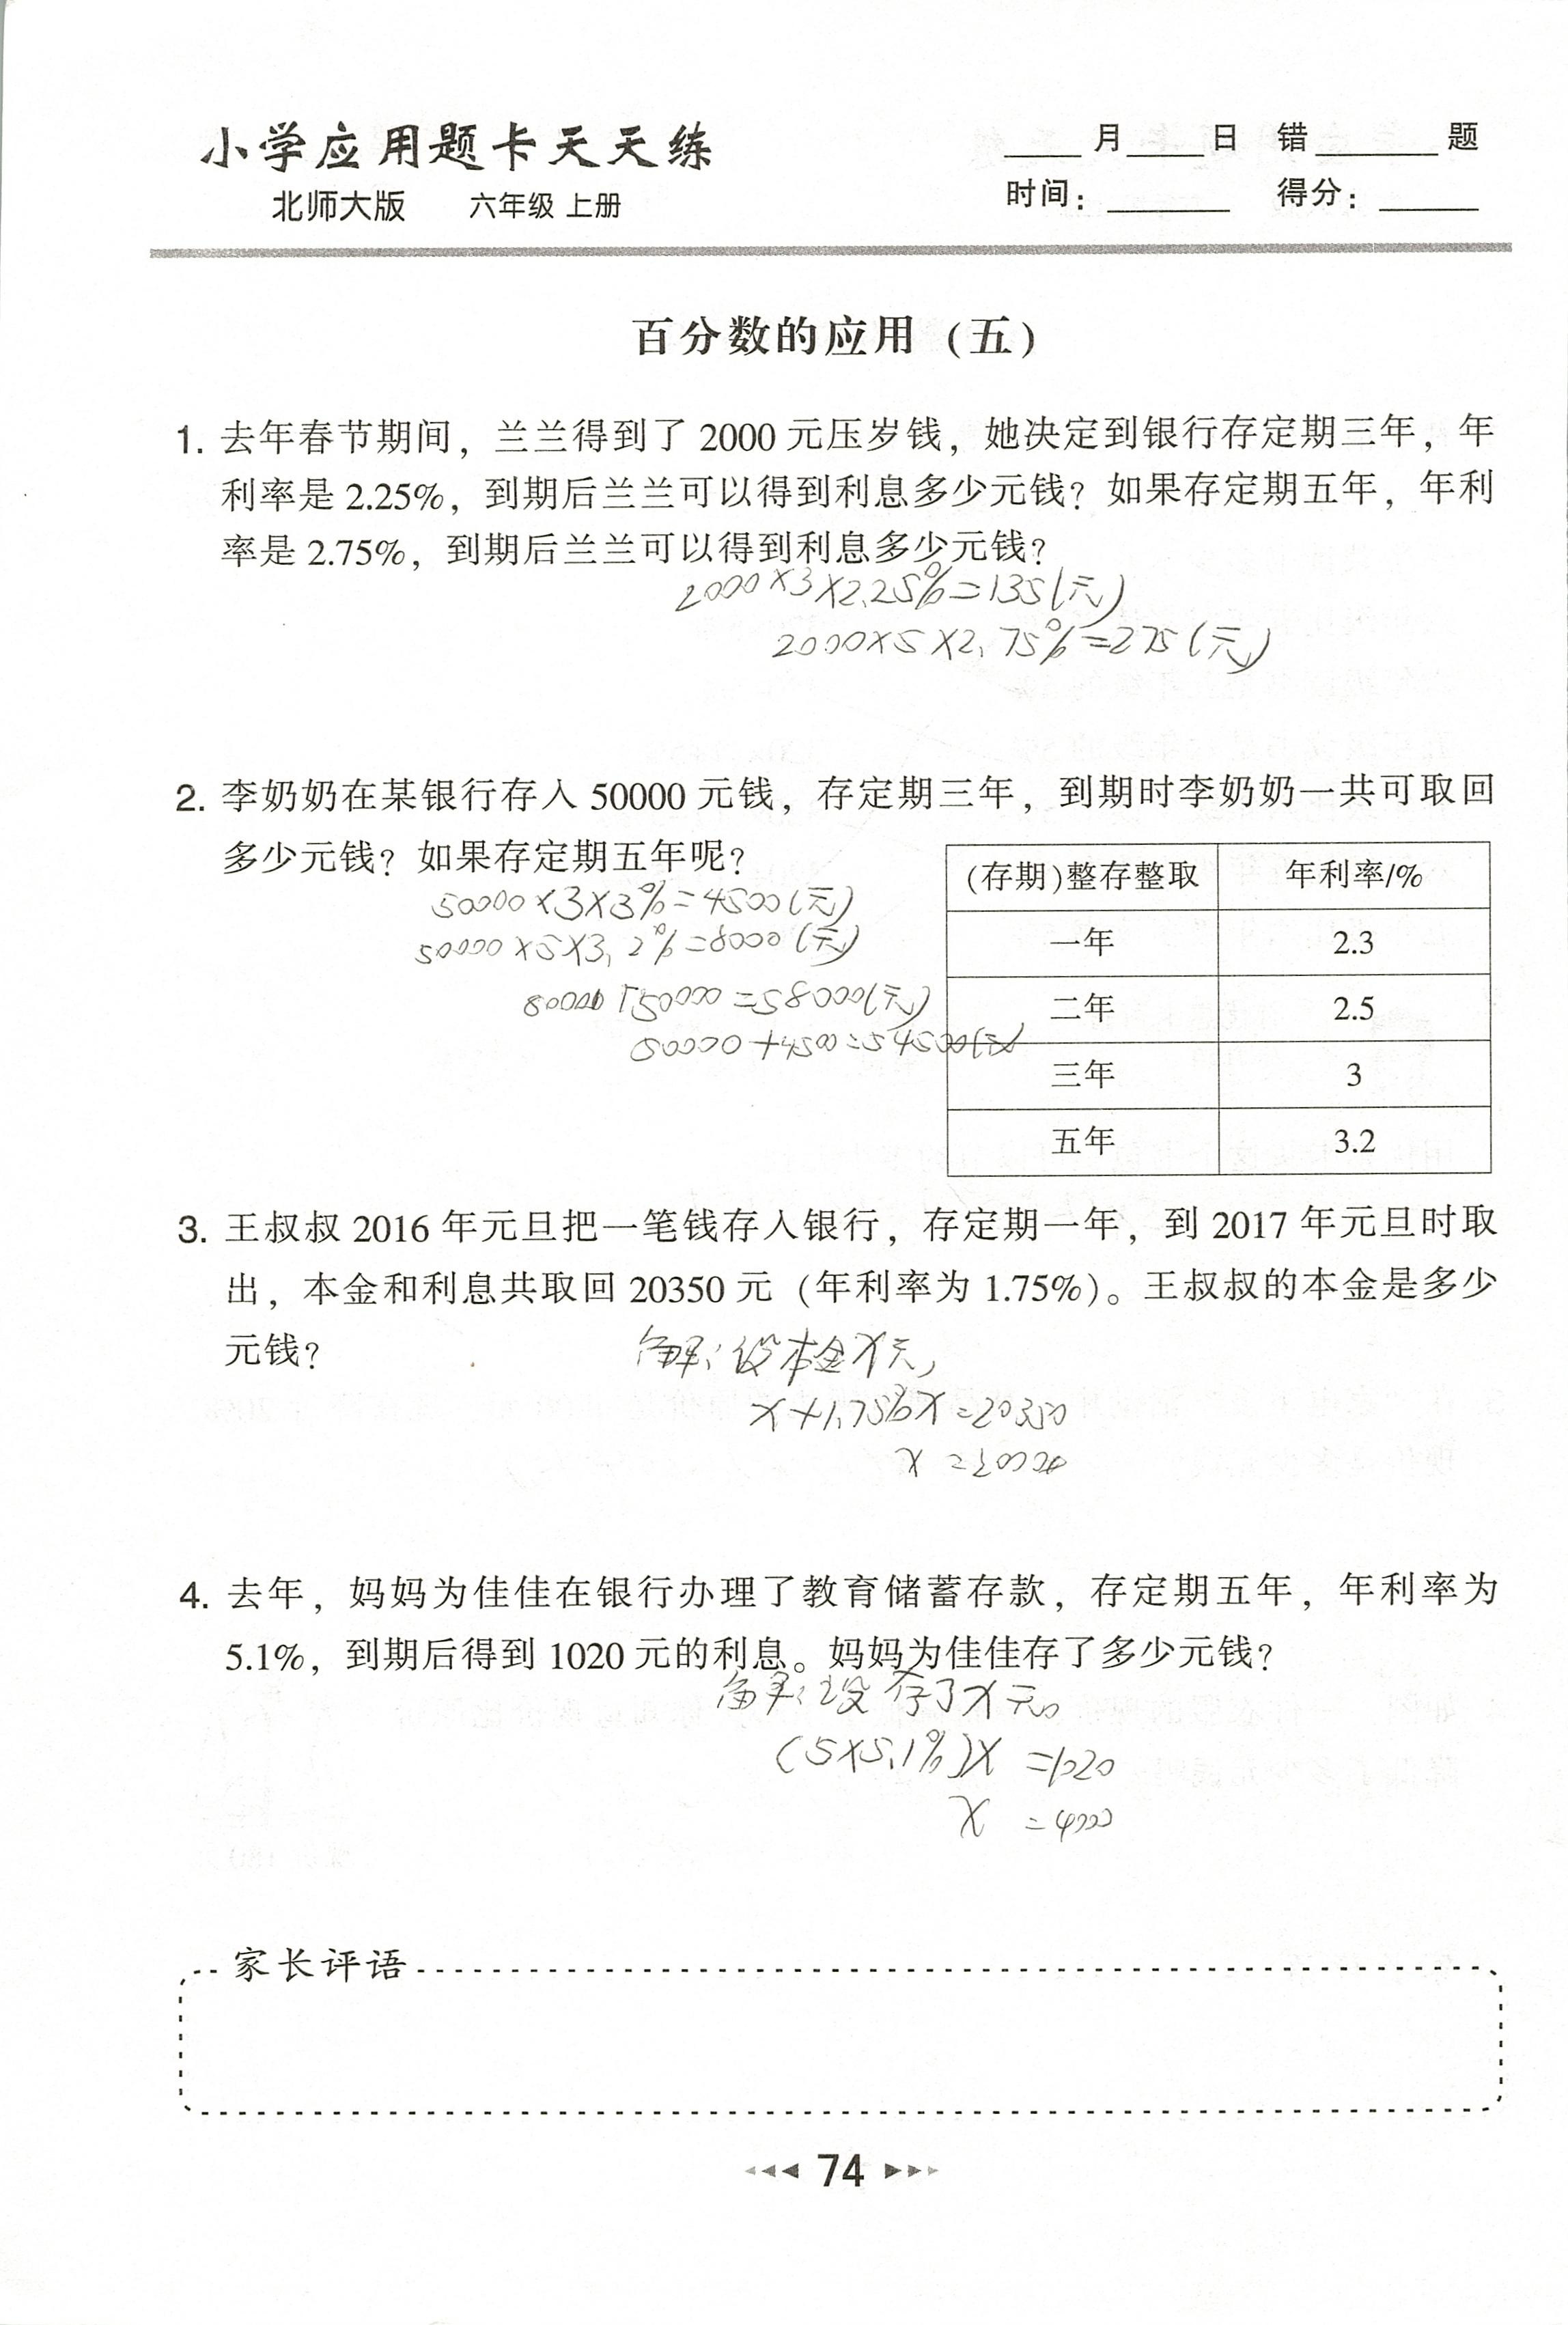 小学应用题卡天天练
北师大版 六年级 上册
____月____日 错______题
时间：______ 得分：_____
百分数的应用（五）
1. 去年春节期间，兰兰得到了 2000 元压岁钱，她决定到银行存定期三年，年
利率是 2.25%，到期后兰兰可以得到利息多少元钱？如果存定期五年，年利
率是 2.75%，到期后兰兰可以得到利息多少元钱？
2000×3×2.25%=135(元)
2000×5×2.75%=275(元)
2. 李奶奶在某银行存入 50000 元钱，存定期三年，到期时李奶奶一共可取回
多少元钱？如果存定期五年呢？
50000×3×3%=4500(元)
50000×5×3.2%=8000(元)
50000=58000(元)
50000+4500=54500(元)
(存期)整存整取 年利率/%
一年 2.3
二年 2.5
三年 3
五年 3.2
3. 王叔叔 2016 年元旦把一笔钱存入银行，存定期一年，到 2017 年元旦时取
出，本金和利息共取回 20350 元（年利率为 1.75%）。王叔叔的本金是多少
元钱？
解：设本金x元，
x+1.75%x=20350
x=20000
4. 去年，妈妈为佳佳在银行办理了教育储蓄存款，存定期五年，年利率为
5.1%，到期后得到 1020 元的利息。妈妈为佳佳存了多少元钱？
解：设存了x元。
(5×5.1%)x=1020
x=4000
家长评语
74